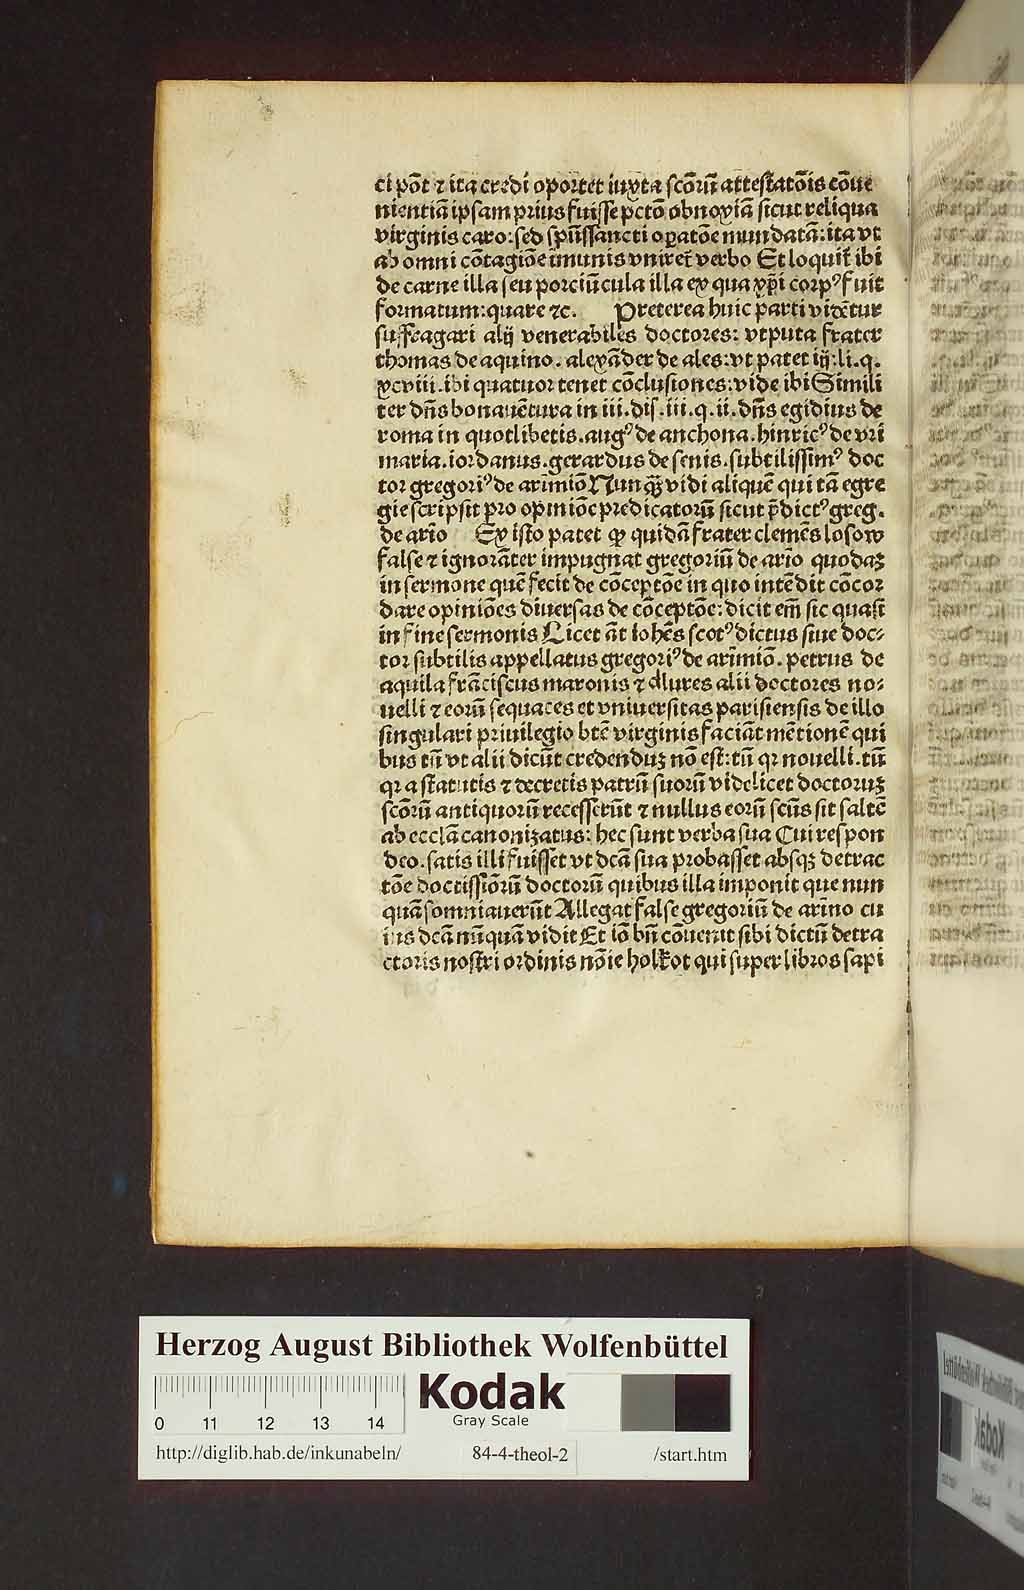 ci põt ⁊ ita credi oportet iuxta scõrũ attestatõis cõue
nientiã ipsam prius fuisse pctõ obnoxiã sicut reliqua
virginis caro: sed spũssancti oꝑatõe mundatã: ita vt
ab omni cõtagiõe ĩmunis vniret᷑ verbo Et loquit᷑ ibi
de carne illa seu porciũcula illa ex qua xp̃i corpꝰ fuit
formatum: quare ⁊c. Preterea huic parti vidẽtur
suffragari alij venerabiles doctores: vtputa frater
thomas de aquino. alexãder de ales: vt patet iij: li. q.
xcviii. ibi quatuor tenet cõclusiones: vide ibi Simili
ter dñs bonauẽtura in iii. dis. iii. q. ii. dñs egidius de
roma in quotlibetis. augꝰ de anchona. hinricꝰ de vri
maria. iordanus. gerardus de senis. subtilissimꝰ doc
tor gregoriꝰ de arĩmiõ Nunqꝙ̃ vidi aliquẽ qui tã egre
gie scripsit pro opiniõe predicatorũ sicut p̃dictꝰ greg.
de ariõ Ex isto patet ꝙ quidã frater clemẽs losow
false ⁊ ignorãter impugnat gregoriũ de ariõ quodaꝫ
in sermone quẽ fecit de cõceptõe in quo intẽdit cõcor
dare opiniões diuersas de cõceptõe: dicit em̃ sic quasi
in fine sermonis Licet ãt iohẽs scotꝰ dictus siue doc⸗
tor subtilis appellatus gregoriꝰ de arĩmiõ. petrus de
aquila frãciscus maronis ⁊ plures alii doctores no⸗
uelli ⁊ eorũ sequaces et vniuersitas parisiensis de illo
singulari priuilegio btẽ virginis faciãt mẽtionẽ qui
bus tñ vt alii dicũt credenduꝫ nõ est: tũ qꝛ nouelli. tũ
qꝛ a statutis ⁊ decretis patrũ suorũ videlicet doctoruꝫ
scõrũ antiquorũ recesserũt ⁊ nullus eorũ scũs sit saltẽ
ab ecclã canonizatus: hec sunt verba sua Cui respon
deo. satis illi fuisset vt dcã sua probasset absqꝫ detrac
tõe doctissiõrũ doctorũ quibus illa imponit que nun
quã somniauerũt Allegat false gregoriũ de arĩno cu
ius dcã nũquã vidit Et iõ bñ cõuenit sibi dictũ detra
ctoris nostri ordinis nõie holkot qui super libros sapi
Herzog August Bibliothek Wolfenbüttel
Kodak
Gray Scale
0 11 12 13 14
http://diglib.hab.de/inkunabeln/ 84-4-theol-2 /start.htm